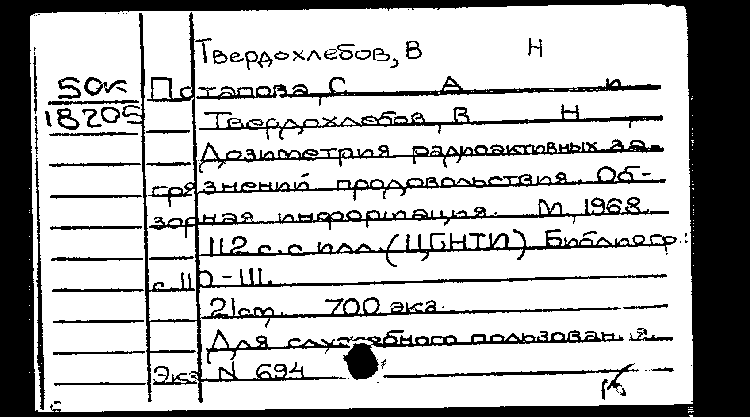 Твердохлебов, В Н
50к Потапова, С А и
18205 Твердохлебов, В Н,
Дозиметрия радиоактивных за-
грязнений продовольствия. Об-
зорная информация. М, 1968.
112 с. с илл. (ЦБНТИ) Библиогр.:
с. 110-111.
21 см. 700 экз.
Для служебного пользования.
Экз N 694